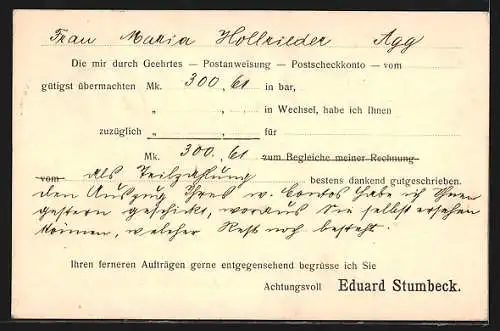 Frau Maria Hollrieder Agg
Die mir durch Geehrtes — Postanweisung — Postscheckkonto — vom
gütigst übermachten Mk. 300,61 in bar,
„ „ in Wechsel, habe ich Ihnen
zuzüglich „ „ für
Mk. 300,61 zum Begleiche meiner Rechnung
vom als Teilzahlung bestens dankend gutgeschrieben.
den Auszug Ihres w. Contos habe ich Ihnen
gestern geschickt, woraus Sie selbst ersehen
können, welcher Rest noch besteht.
Ihren ferneren Aufträgen gerne entgegensehend begrüsse ich Sie
Achtungsvoll Eduard Stumbeck.